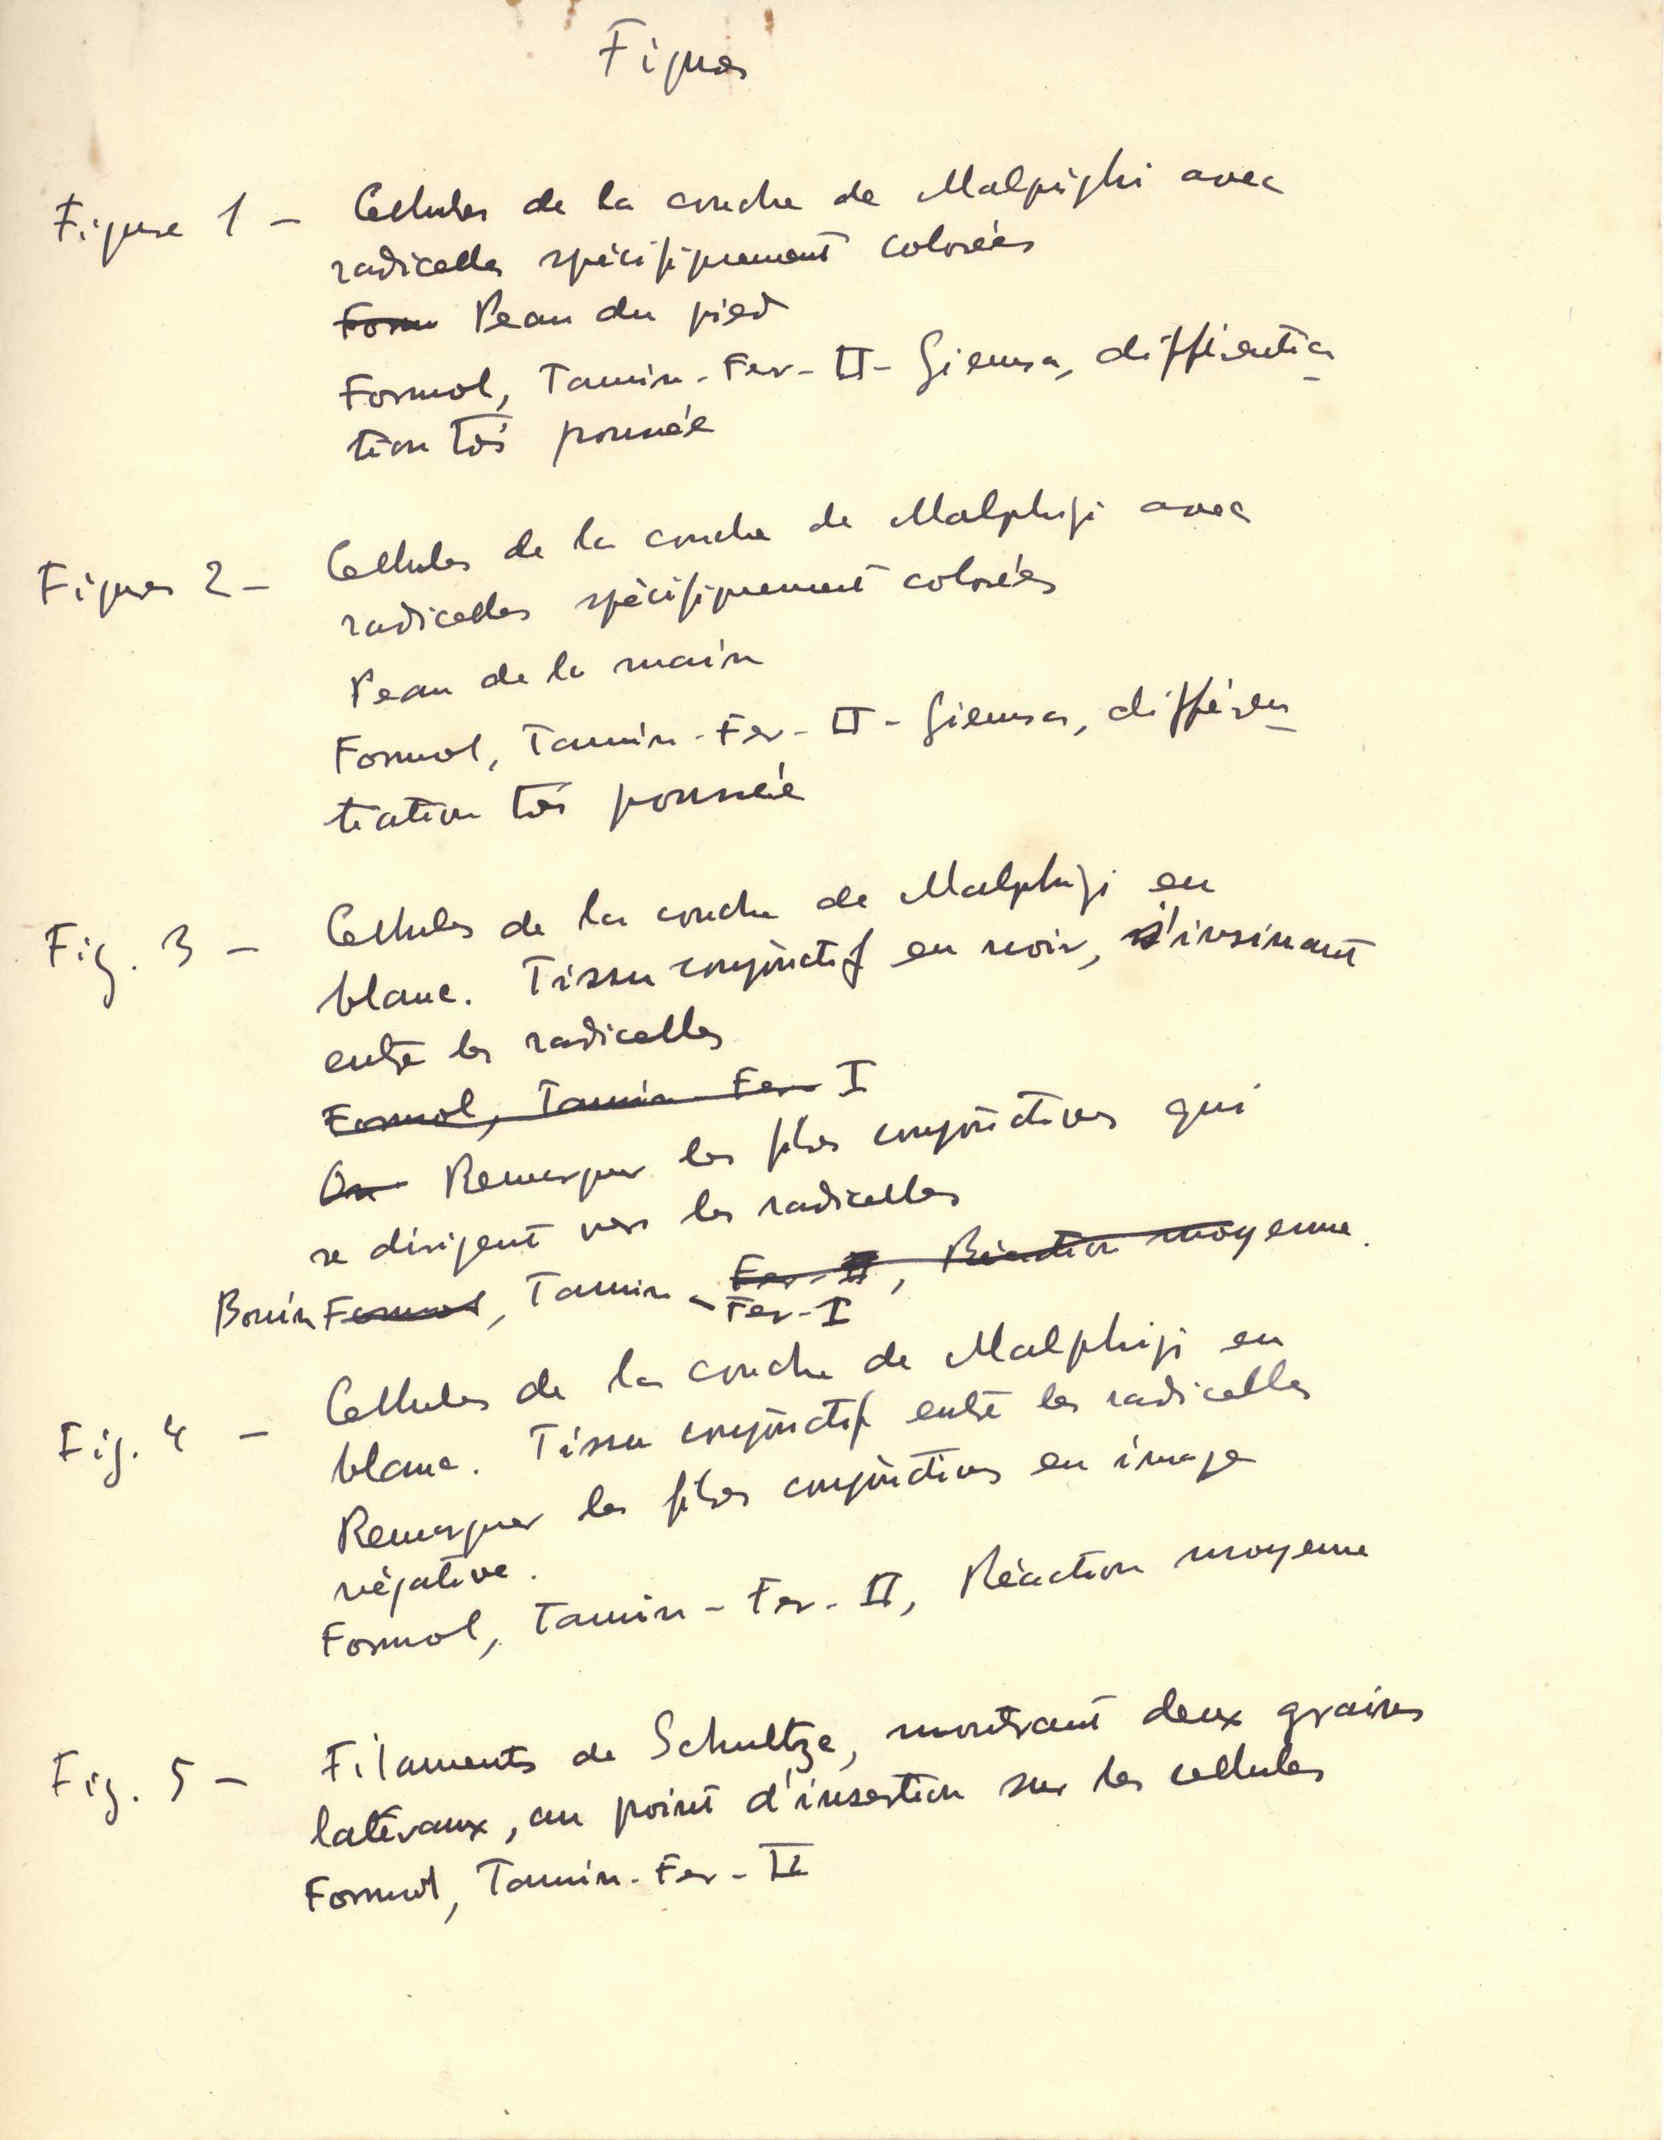 Figures
Figure 1 - Cellules de la couche de Malpighi avec
radicelles spécifiquement colorées
Form Peau du pied
Formol, Tannin-Fer-II-Giemsa, différentia-
tion très poussée
Figures 2 - Cellules de la couche de Malphigi avec
radicelles spécifiquement colorées
Peau de la main
Formol, Tannin-Fer-II-Giemsa, différen-
tiation très poussée
Fig. 3 - Cellules de la couche de Malphigi en
blanc. Tissu conjonctif en noir, s'insinant
entre les radicelles
Formol, Tannin-Fer I
On Remarquer les fibres conjonctives qui
se dirigent vers les radicelles
Bouin Formol, Tannin - Fer-II, Réaction moyenne.
Fer-I
Fig. 4 - Cellules de la couche de Malphigi en
blanc. Tissu conjonctif entre les radicelles
Remarquer les fibres conjonctives en image
négative.
Formol, Tannin-Fer-II, Réaction moyenne
Fig. 5 - Filaments de Schultze, montrant deux grains
latéraux, au point d'insertion sur les cellules
Formol, Tannin-Fer-II